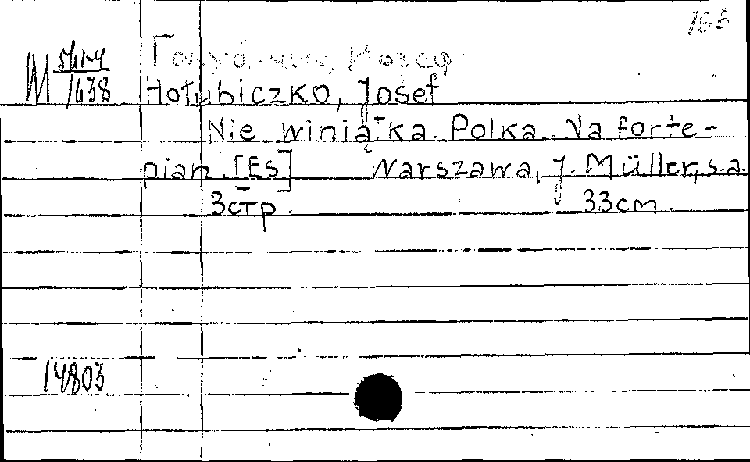 165
M
1638
Hołubiczko, Josef
Niewiniątka. Polka. Na forte-
pian. [Es] Warszawa, J. Müller, s.a.
3 стр. 33 cm.
14803